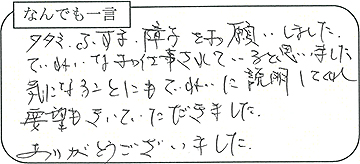 なんでも一言
タタミ、ふすま、障子をお願いしました。
ていねいなお仕事されていると思いました
気になることにもていねいに説明してくれ
要望もきいていただきました。
ありがとうございました。